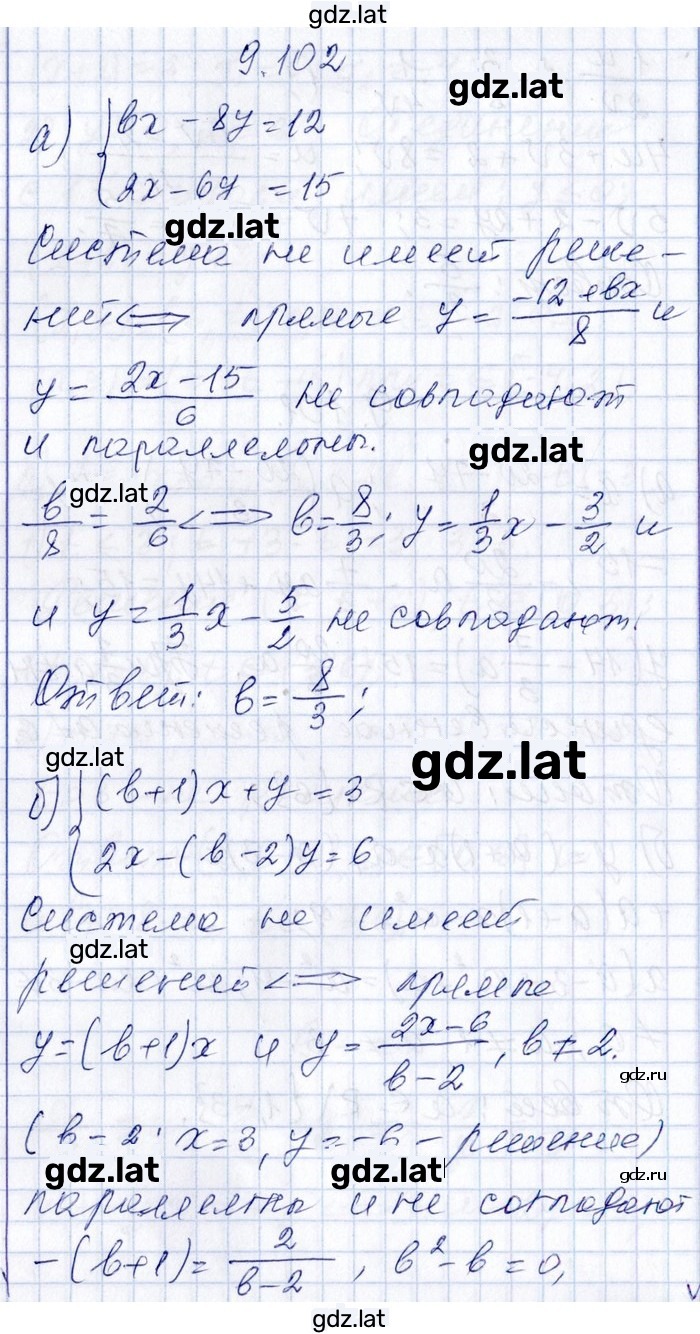 gdz.lat
9.102
gdz.lat
а) { bx - 8y = 12
2x - 6y = 15
gdz.lat
Система не имеет реше-
ний <=> прямые y = (-12 + bx)/8 и
y = (2x - 15)/6 не совпадают
и параллельны.
gdz.lat
gdz.lat
b/8 = 2/6 <=> b = 8/3; y = 1/3 x - 3/2 и
и y = 1/3 x - 5/2 не совпадают.
Ответ: b = 8/3;
gdz.lat
gdz.lat
б) { (b+1)x + y = 3
2x - (b-2)y = 6
Система не имеет
gdz.lat
решений <=> прямые
y = (b+1)x и y = (2x - 6)/(b - 2), b ≠ 2.
gdz.ru
(b = 2: x = 3, y = -6 - решение)
gdz.lat
gdz.lat
gdz.ru
параллельны и не совпадают
-(b+1) = 2/(b-2), b² - b = 0,
gdz.lat